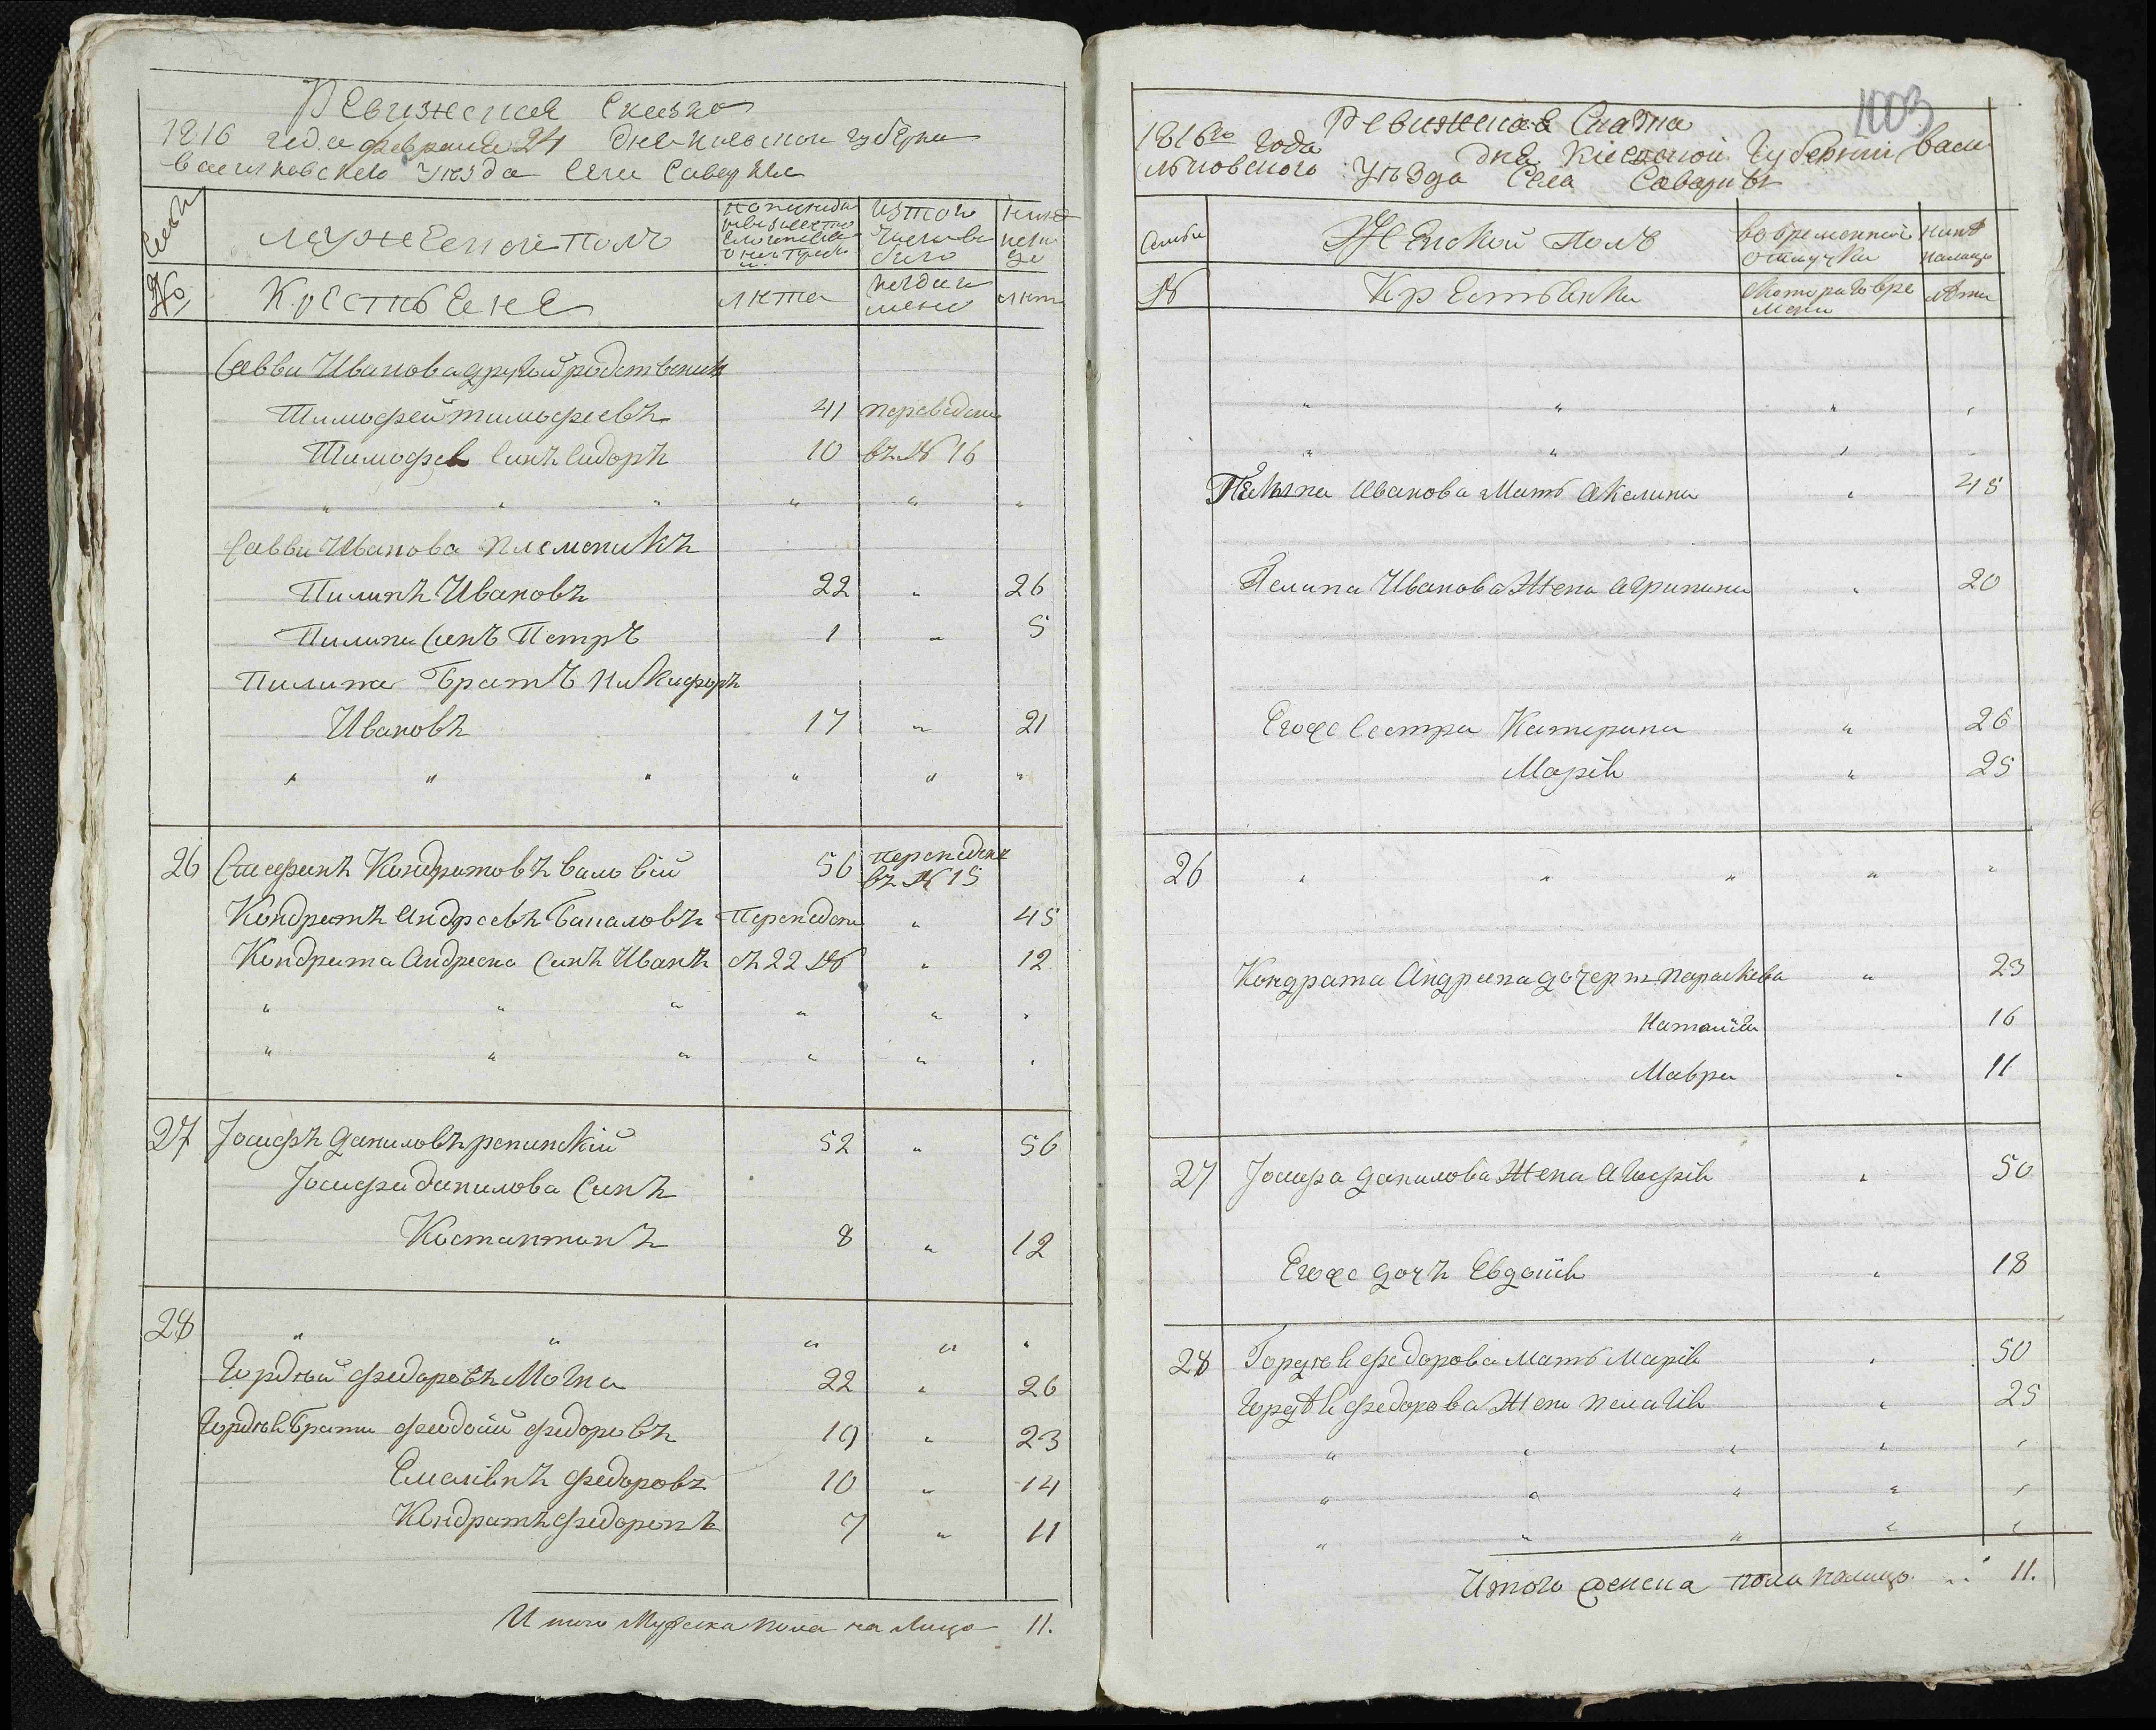 Ревижская Сказка
1816 года февраля 24 дня киевской губерни
василковского уезда села Саварки
Семьи
Мужеской полъ
по последней ревизiи состояло
изъ того числа выбыло
нине на лицо
№
Крестьяне
лета
когда имено
лета
Савви Иванова другой родственикъ
Тимофей тимофеевъ 41 переведени
Тимофея синъ Сидоръ 10 въ № 16
" " " " " "
Савви Иванова племеникъ
Пилипъ Ивановъ 22 " 26
Пилипа Синъ Петръ 1 " 5
Пилипа Братъ Никифоръ
Ивановъ 17 " 21
" " " " " "
26 Стефанъ Кондратовъ 56 переведенъ
въ № 15
Кондратъ Андреевъ Переведени " 45
Кондрата Андреева Синъ Иванъ съ 22 № " 12
" " " " " "
" " " " " "
27 Іосифъ Даниловъ репинскій 52 " 56
Іосифа данилова Синъ
Костантинъ 8 " 12
28 " " " " "
Гордѣй федоровъ Могила 22 " 26
Гордѣя Брати федоровъ 19 " 23
Емелiянъ федоровъ 10 " 14
Кондратъ федоровъ 7 " 11
Итого Мужеска пола на лицо 11.
1003
Ревижская Сказка
1816го года дня Кіевской Губерніи васи
льковского Уѣзда Села Саварки
Семьи
Женской Полъ
во временной отлучки
нинѣ налицо
№
Крестьянки
Скоторого времени
лѣта
" " " "
" " " "
Пилипа Иванова Мать Акелина " 45
Пелипа Иванова Жена Агрипина " 20
Егоже Сестри Катерина " 26
Марія " 25
26 " " " " "
Кондрата Андреева дочери параскева " 23
Наталія 16
Мавра " 11
27 Іосифа данилова Жена Агафія " 50
Егоже дочъ Евдокія " 18
28 Гордѣя федорова Мать Марія " 50
Гордѣя федорова Жена пелагія " 25
" " " " "
" " " " "
" " " " "
Итого женска пола налицо .. 11.